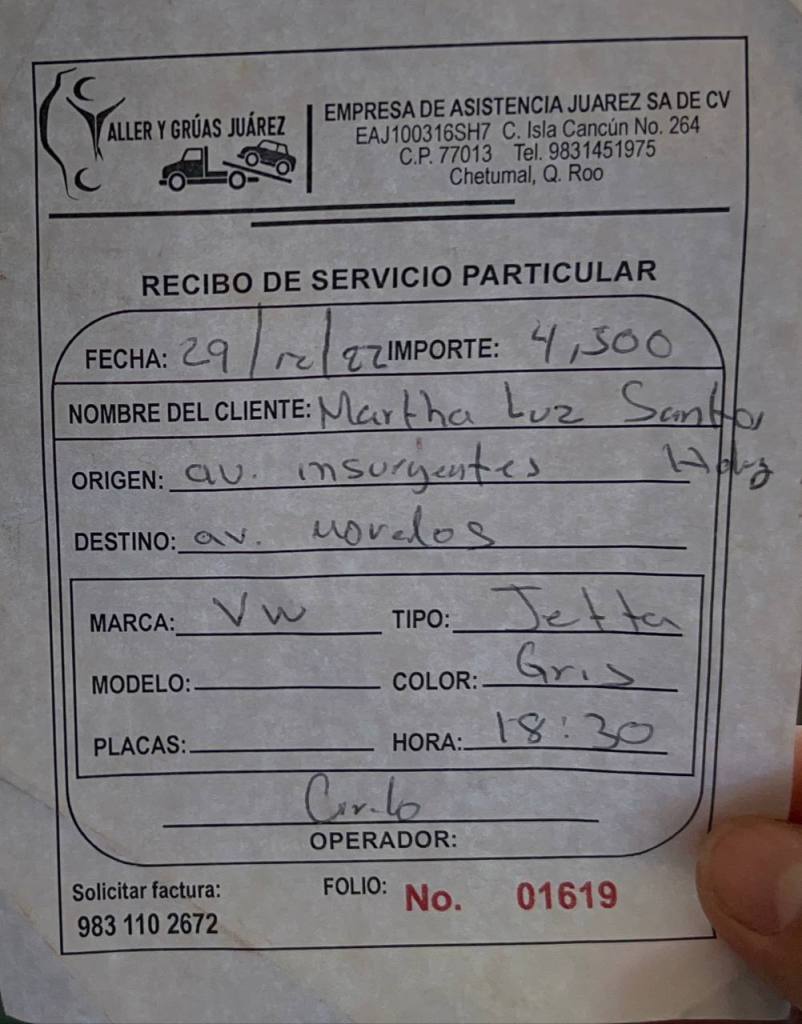 TALLER Y GRÚAS JUÁREZ
EMPRESA DE ASISTENCIA JUAREZ SA DE CV
EAJ100316SH7 C. Isla Cancún No. 264
C.P. 77013 Tel. 9831451975
Chetumal, Q. Roo
RECIBO DE SERVICIO PARTICULAR
FECHA: 29/12/22 IMPORTE: 4,500
NOMBRE DEL CLIENTE: Martha Luz Santos
Hdz
ORIGEN: av. insurgentes
DESTINO: av. Morelos
MARCA: VW TIPO: Jetta
MODELO: COLOR: Gris
PLACAS: HORA: 18:30
Cirilo
OPERADOR:
Solicitar factura: FOLIO: No. 01619
983 110 2672